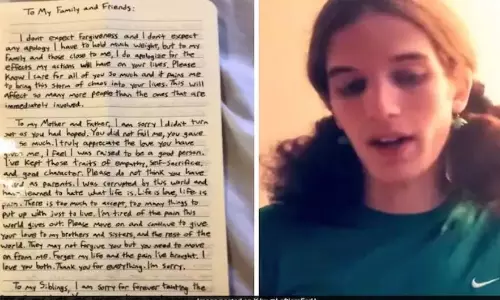 To My Family and Friends:
I don't expect forgiveness and I don't expect
any apology I have to hold much weight, but to my
family and those close to me, I do apologize for the
effects my actions will have on your lives. Please
Know I care for all of you so much and it pains me
to bring this storm of chaos into your lives. This will
affect so many more people than the ones that are
immediately involved.
To my Mother and Father, I am sorry I didn't turn
out as you had hoped. You did not fail me, you gave
so much. I truly appreciate the love you have
given me, I feel I was raised to be a good person.
I've kept those traits of empathy, self-sacrifice,
and good character. Please do not think you have
failed as parents. I was corrupted by this world and
have learned to hate what life is. Life is love, life is
pain. There is too much to accept, too many things to
put up with just to live. I'm tired of the pain this
world gives out. Please move on and continue to give
your love to my brothers and sisters, and the rest of the
world. They may not forgive you but you need to move
on from me. Forget my life and the pain I've brought. I
love you both. Thank you for everything. I'm sorry.
To my Siblings, I am sorry for forever tainting the